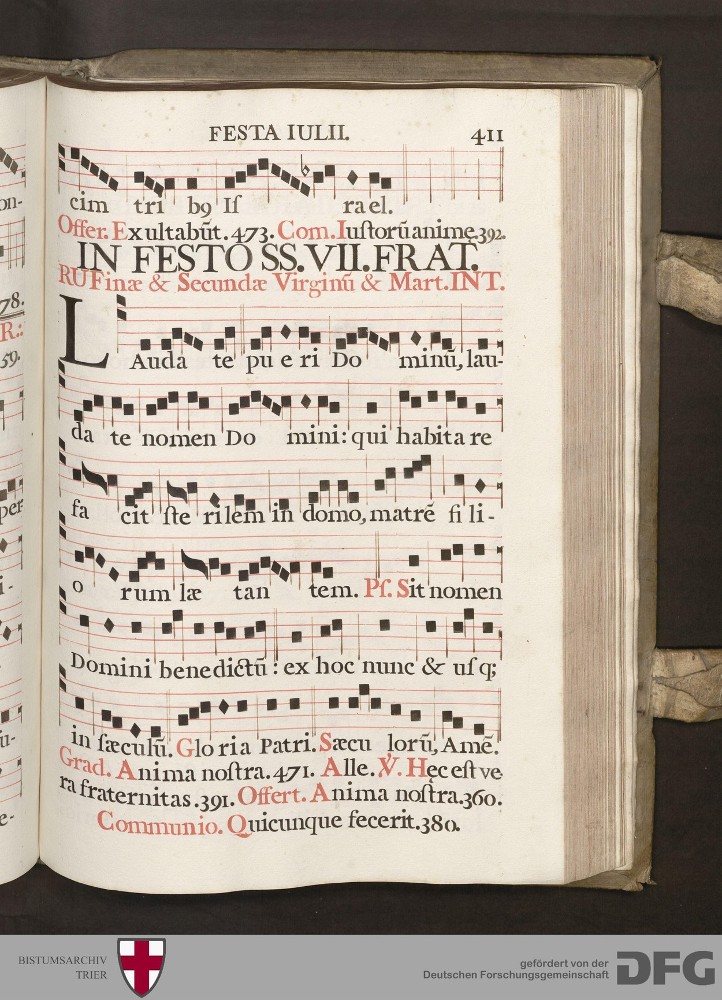 FESTA IULII. 411
cim tri bꝰ Iſ rael.
Offer. Exultabūt. 473. Com. Iuſtorū animę. 392.
IN FESTO SS. VII. FRAT.
RUFinæ & Secundæ Virginū & Mart. INT.
LAuda te pu e ri Do minū, lau-
da te nomen Do mini: qui habita re
fa cit ſte rilem in domo, matrē fi li-
o rum læ tan tem. Pſ. Sit nomen
Domini benedictū: ex hoc nunc & uſq;
in ſæculū. Glo ria Patri. Sæcu lorū, Amē.
Grad. Anima noſtra. 471. Alle. ℣. Hęc eſt ve
ra fraternitas. 391. Offert. Anima noſtra. 360.
Communio. Quicunque fecerit. 380.
on-
78.
R.:
59.
per-
i-
u-
e-
BISTUMSARCHIV
TRIER
gefördert von der
Deutschen Forschungsgemeinschaft
DFG